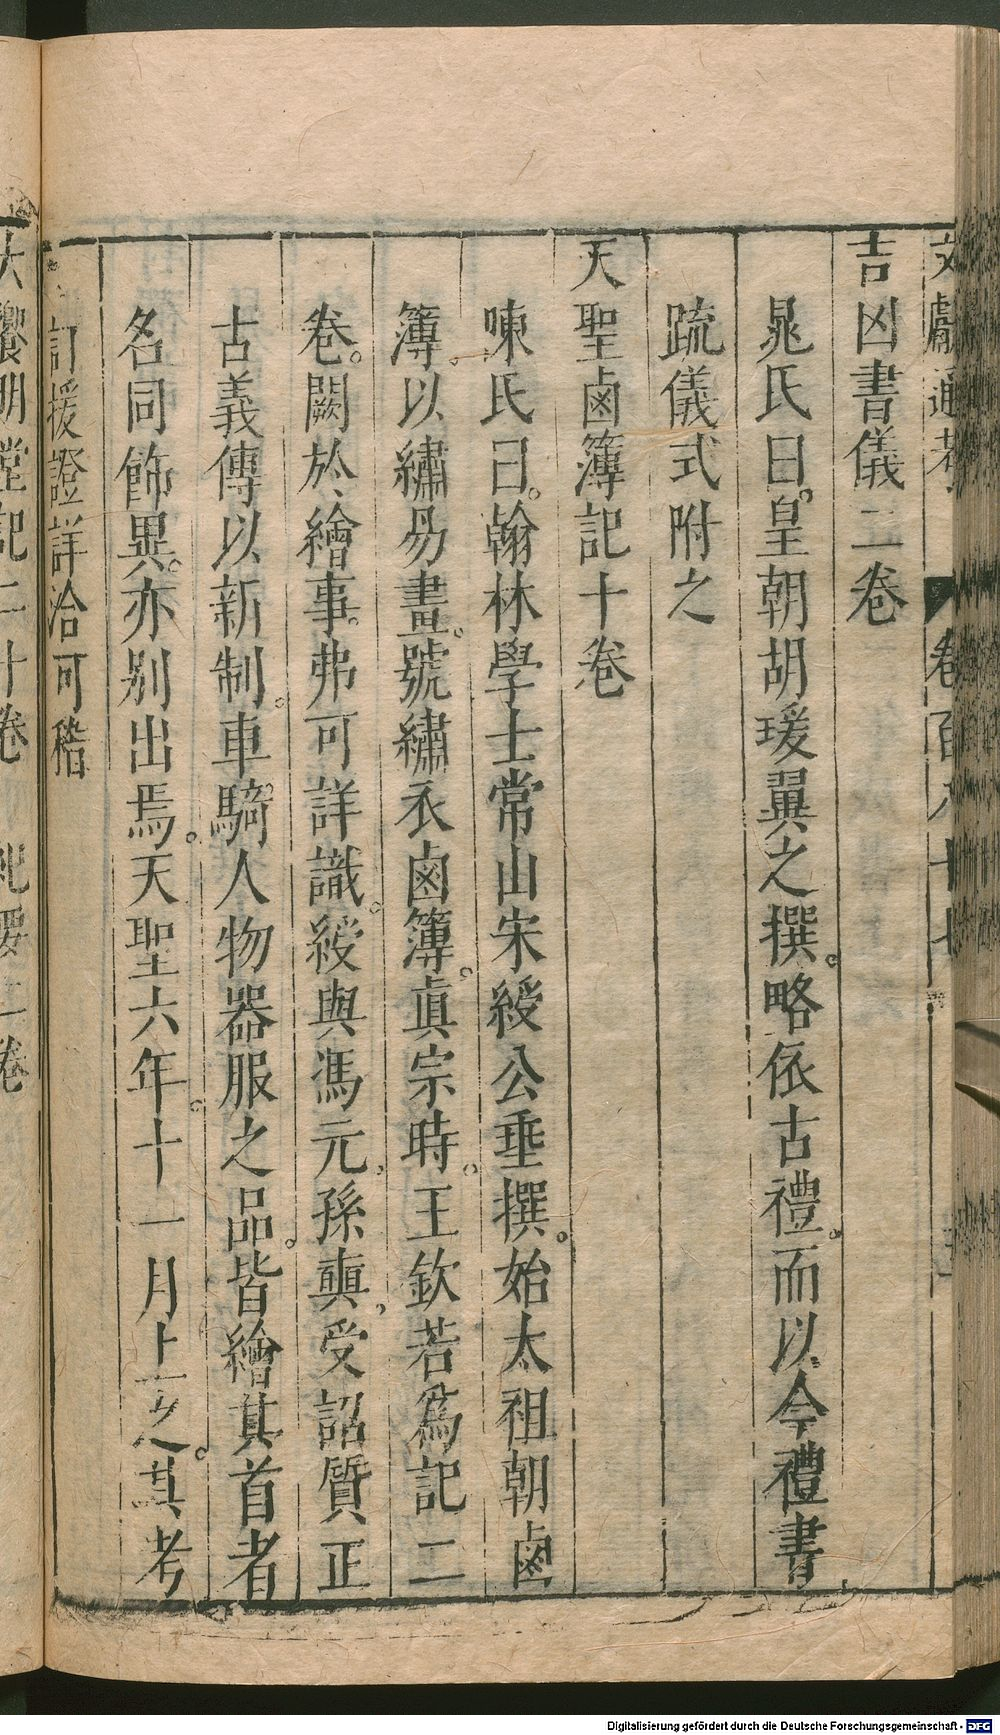 文獻通考 卷百八十七
吉凶書儀二卷
晁氏曰皇朝胡瑗翼之撰略依古禮而以今禮書
疏儀式附之
天聖鹵簿記十卷
陳氏曰翰林學士常山宋綬公垂撰始太祖朝鹵
簿以繡易畫號繡衣鹵簿真宗時王欽若為記二
卷闕於繪事弗可詳識綬與馮元孫奭受詔質正
古義傳以新制車騎人物器服之品皆繪其首者
名同飾異亦別出焉天聖六年十一月上之其考
訂援證詳洽可稽
大饗明堂記二十卷 紀要二卷
Digitalisierung gefördert durch die Deutsche Forschungsgemeinschaft - DFG